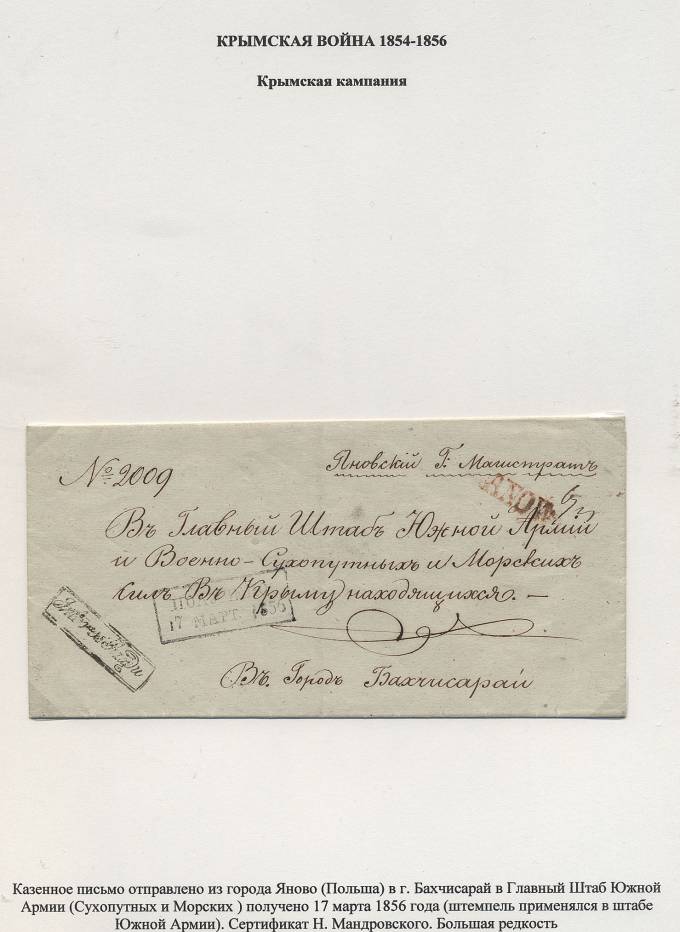 КРЫМСКАЯ ВОЙНА 1854-1856
Крымская кампания
Яновскій Г. Магистратъ
№ 2009
Въ Главный Штабъ Южной Арміи
и Военно-Сухопутныхъ и Морскихъ
силъ Въ Крыму находящихся. —
17 МАРТ. 1856
Въ Городъ Бахчисарай
Казенное письмо отправлено из города Яново (Польша) в г. Бахчисарай в Главный Штаб Южной
Армии (Сухопутных и Морских ) получено 17 марта 1856 года (штемпель применялся в штабе
Южной Армии). Сертификат Н. Мандровского. Большая редкость